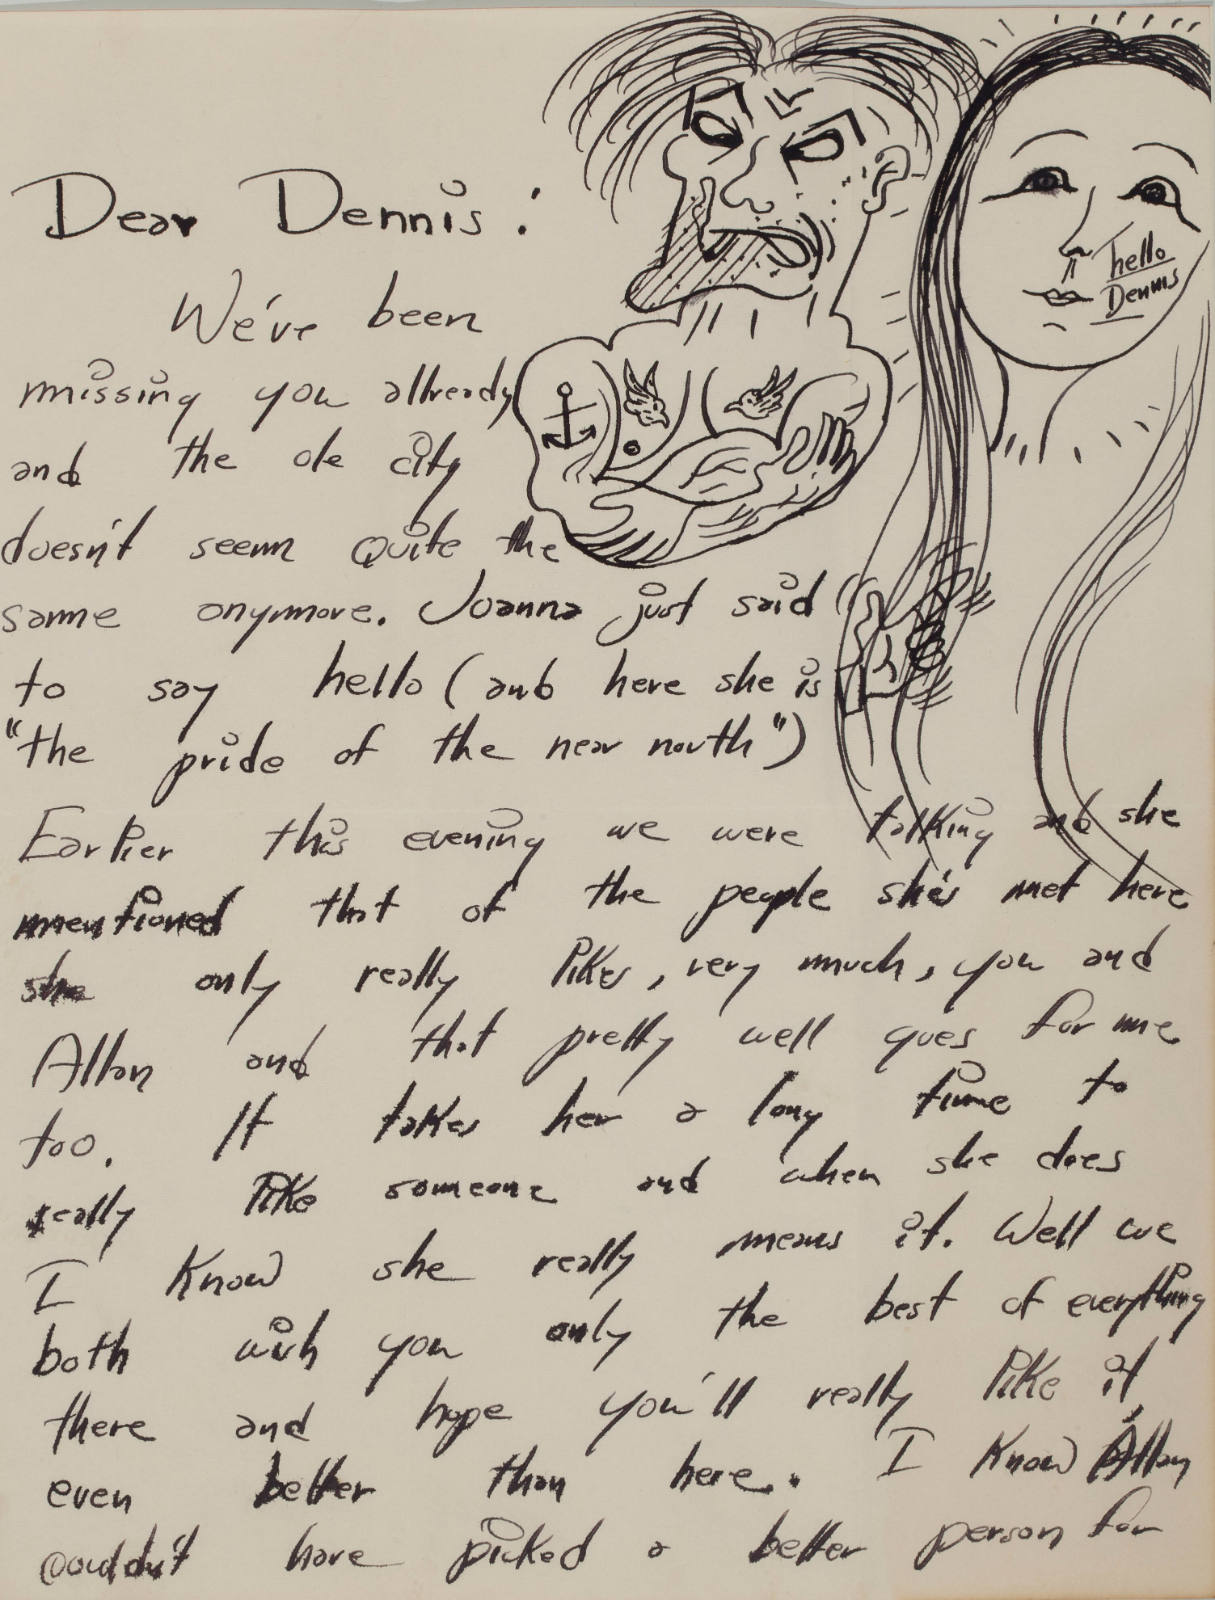 Dear Dennis:
We've been
missing you allready
and the ole city
doesn't seem quite the
same anymore. Joanna just said
to say hello (and here she is
"the pride of the near north")
Earlier this evening we were talking and she
mentioned that of the people she's met here
she only really likes, very much, you and
Allan and that pretty well goes for me
too. It takes her a long time to
really like someone and when she does
I know she really means it. Well we
both wish you only the best of everything
there and hope you'll really like it,
even better than here. I know Allan
couldn't have picked a better person for
hello
Dennis